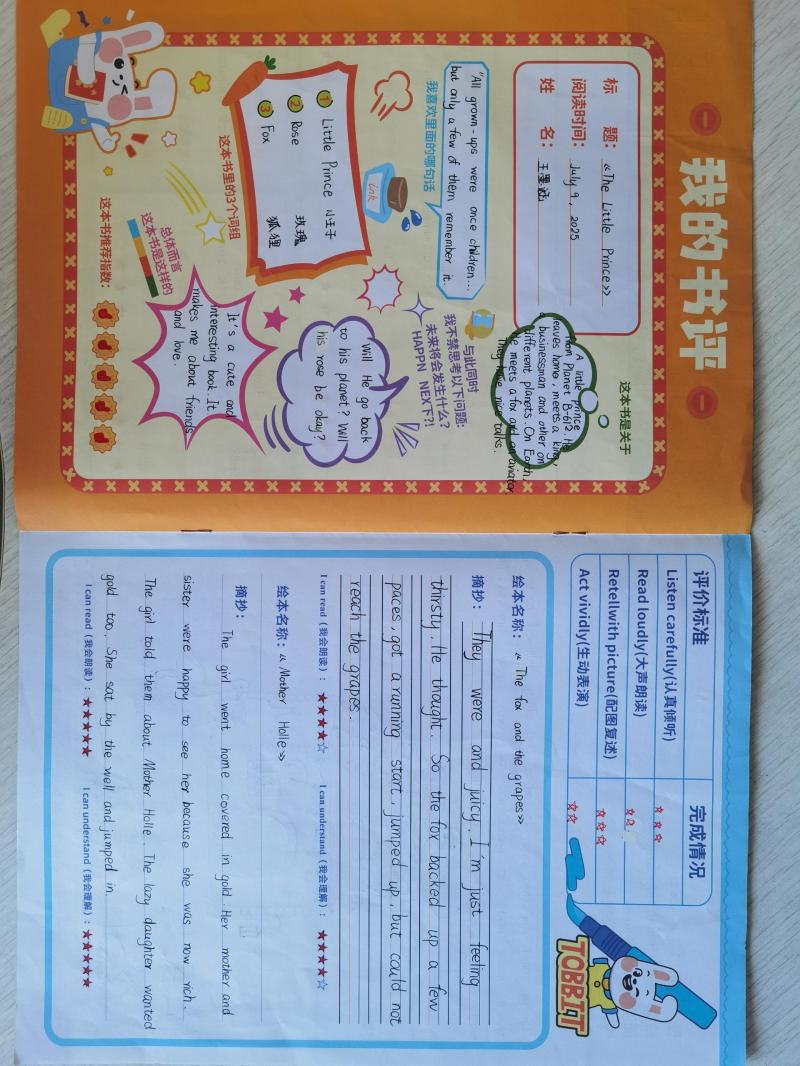 我的书评
标 题：《The Little Prince》
阅读时间： July 9, 2025
姓 名： 王墨涵
这本书是关于
A little Prince
from Planet B-612. He
leaves home, meets a king,
a businessman and other on
different planets. On Earth,
he meets a fox and an aviator.
They have nice talks.
"All grown-ups were once children...
but only a few of them remember it.
我喜欢里面的哪句话
ink
与此同时
我不禁思考以下问题：
未来将会发生什么？
HAPPN NEX下?!
① Little Prince 小王子
② Rose 玫瑰
③ Fox 狐狸
这本书里的3个词组
Will He go back
to his planet? Will
his rose be okay?
总体而言
这本书是这样的
It's a cute and
interesting book. It
makes me about friends
and love.
这本书推荐指数：
评价标准 完成情况
Listen carefully(认真倾听) ☆☆☆
Read loudly(大声朗读) ☆☆
Retellwith picture(配图复述) ☆☆☆
Act vividly(生动表演) ☆☆
TOBBIT
绘本名称：《The fox and the grapes》
摘抄： They were and juicy. I'm just feeling
thirsty. He thought. So the fox backed up a few
paces, got a running start, jumped up, but could not
reach the grapes.
I can read (我会朗读)：★★★★☆ I can understand (我会理解)：★★★★☆
绘本名称：《Mother Holle》
摘抄： The girl went home covered in gold. Her mother and
sister were happy to see her because she was now rich.
The girl told them about Mother Holle. The lazy daughter wanted
gold too. She sat by the well and jumped in.
I can read (我会朗读)：★★★★★ I can understand (我会理解)：★★★★★